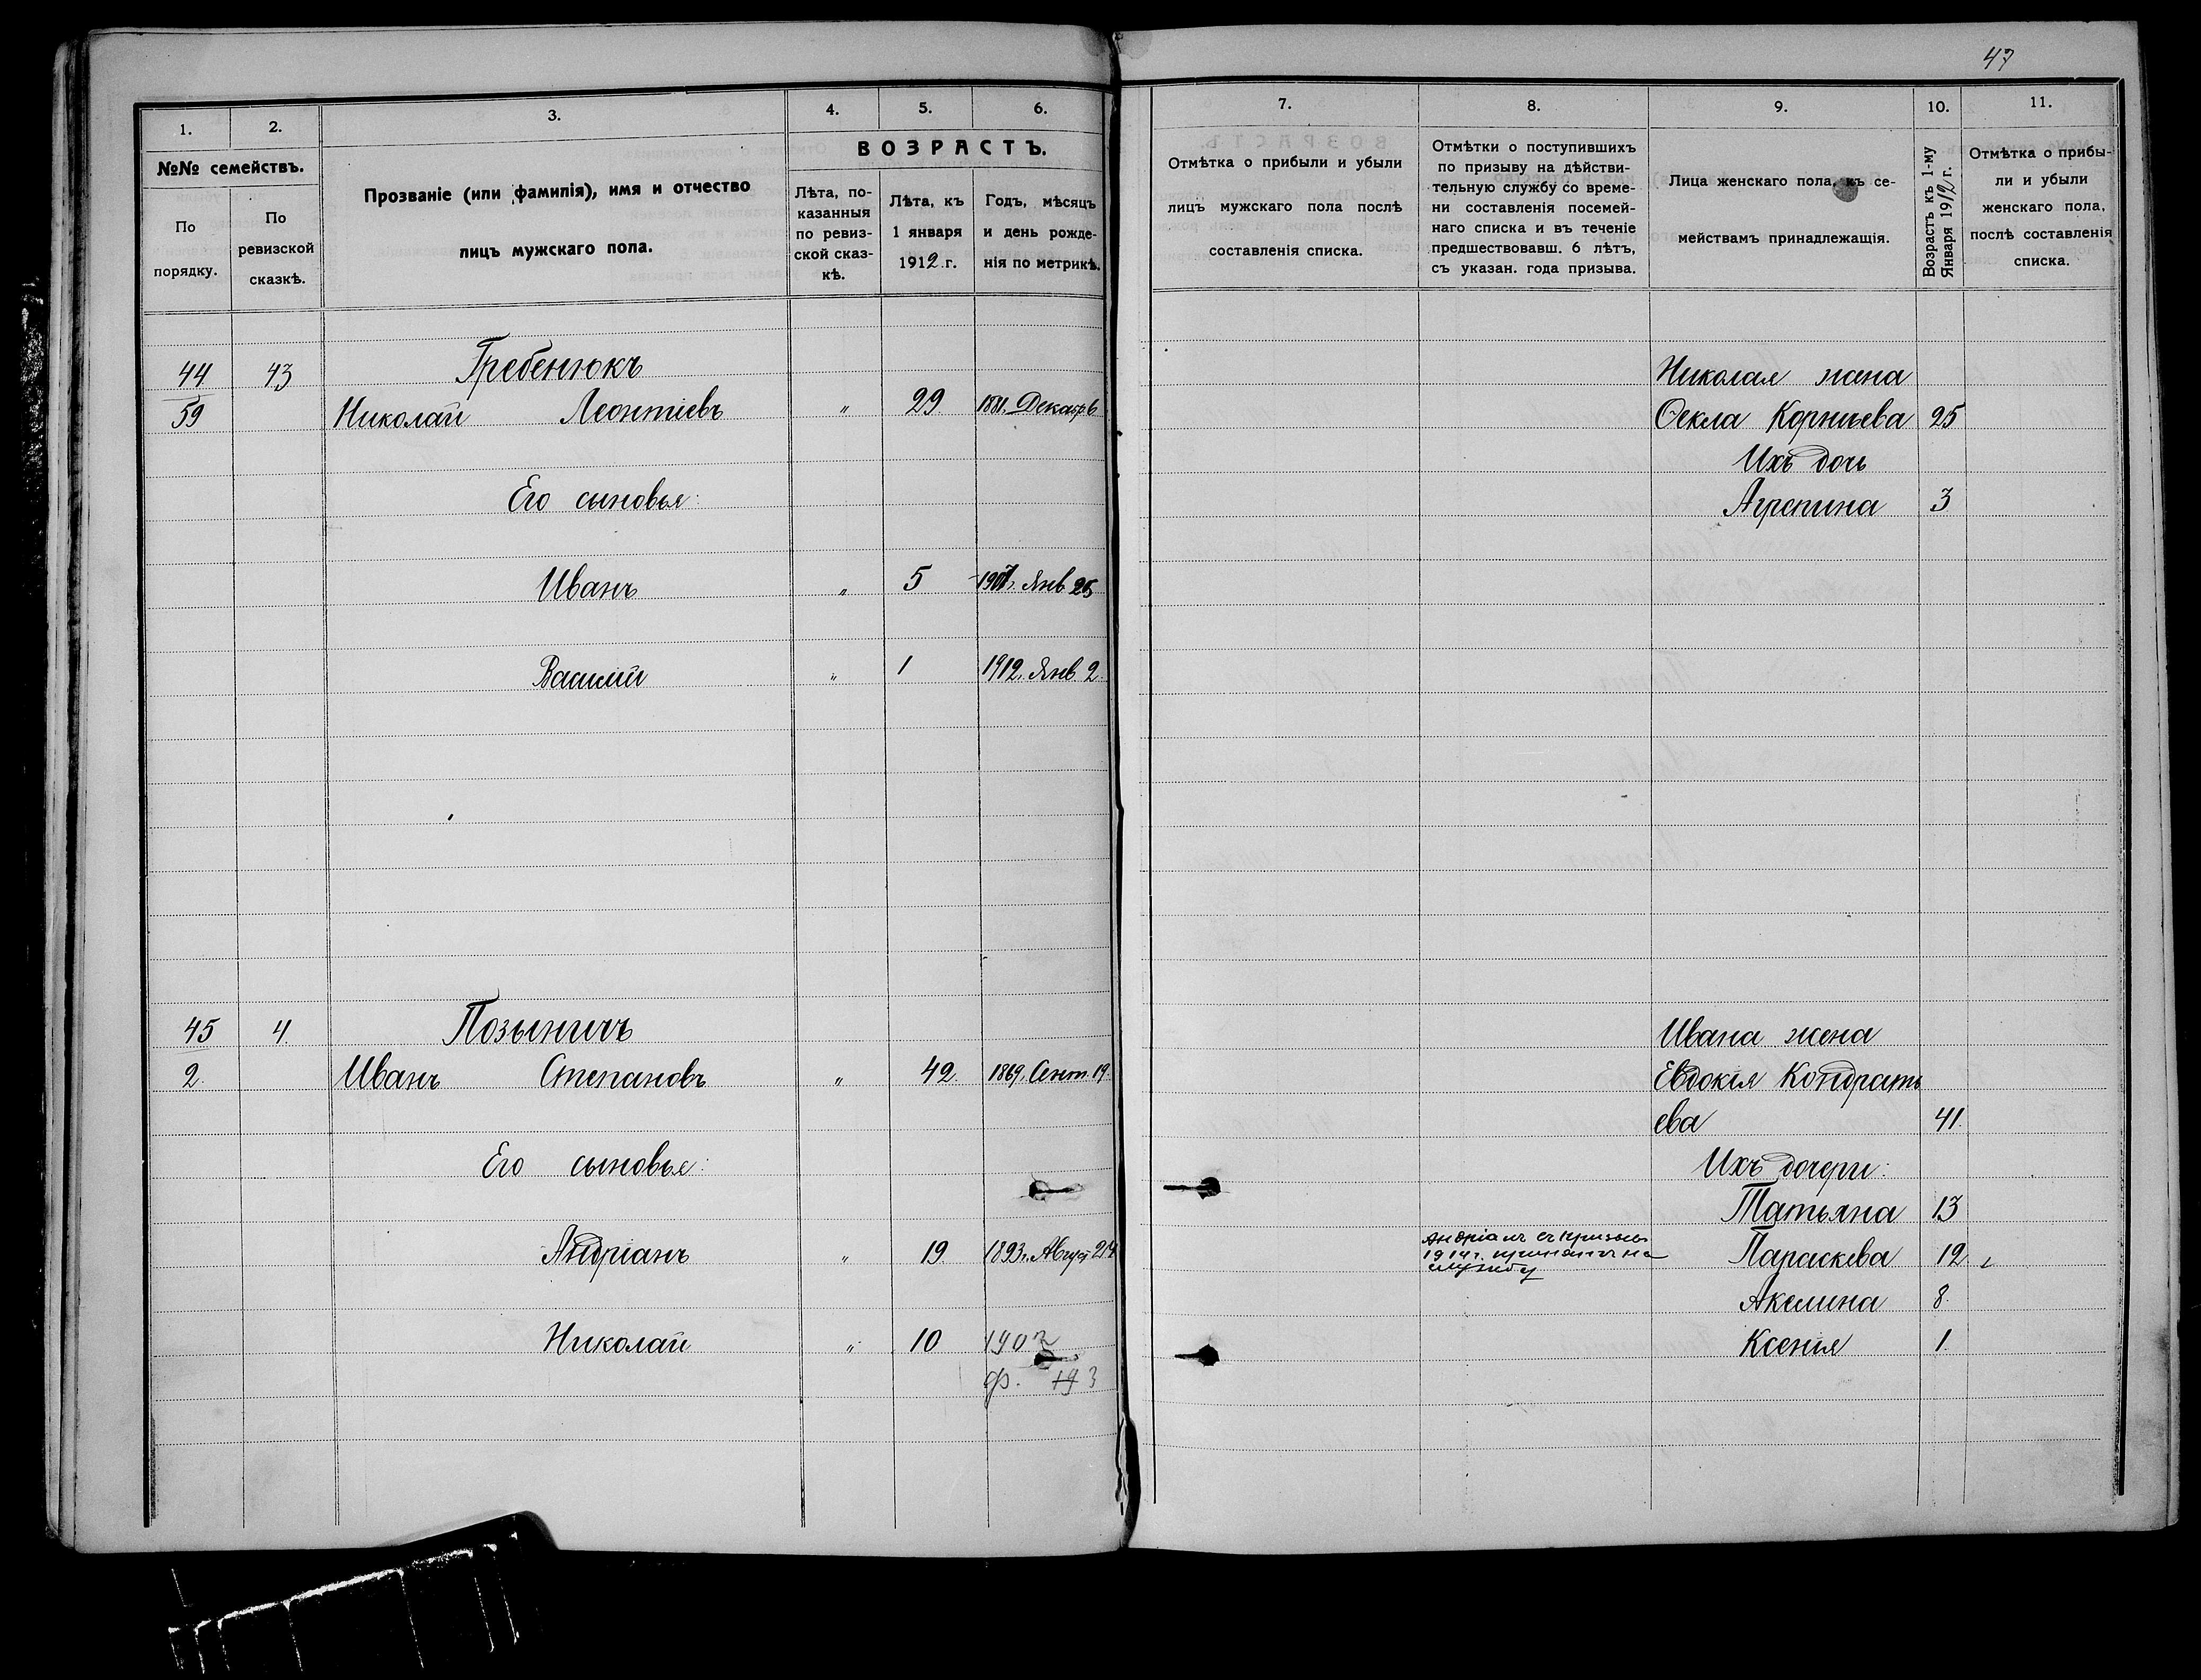 47
1. 2. 3. 4. 5. 6.
№№ семействъ.
По порядку.
По ревизской сказкѣ.
Прозваніе (или фамилія), имя и отчество
лицъ мужскаго пола.
ВОЗРАСТЪ.
Лѣта, по-
казанныя
по ревиз-
ской сказ-
кѣ.
Лѣта, къ
1 января
1912 г.
Годъ, мѣсяцъ
и день рожде-
нія по метрикѣ.
44 43 Гребенюкъ
59 Николай Леонтіевъ " 29 1881. Декабр 6
Его сыновья:
Иванъ " 5 1907 г. Янв 25
Василій " 1 1912. Янв. 2.
45 4. Позыничъ
2. Иванъ Степановъ " 42. 1869. Сент. 19.
Его сыновья:
Андріанъ " 19. 1893 г. Август 24
Николай " 10 1902
ф. 3
7. 8. 9. 10. 11.
Отмѣтка о прибыли и убыли
лицъ мужскаго пола послѣ
составленія списка.
Отмѣтки о поступившихъ
по призыву на дѣйстви-
тельную службу со време-
ни составленія посемей-
наго списка и въ теченіе
предшествовавш. 6 лѣтъ,
съ указан. года призыва.
Лица женскаго пола, къ се-
мействамъ принадлежащія.
Возрастъ къ 1-му
Января 1912 г.
Отмѣтка о прибы-
ли и убыли
женскаго пола,
послѣ составленія
списка.
Николая жена
Ѳекла Корньева 25
Ихъ дочь
Агрепина 3
Ивана жена
Евдокія Кондрать
ева 41.
Ихъ дочери:
Татьяна 13
Андріанъ въ призывъ
1914 г. принятъ на
службу
Параскева 12
Акилина 8.
Ксенія 1.